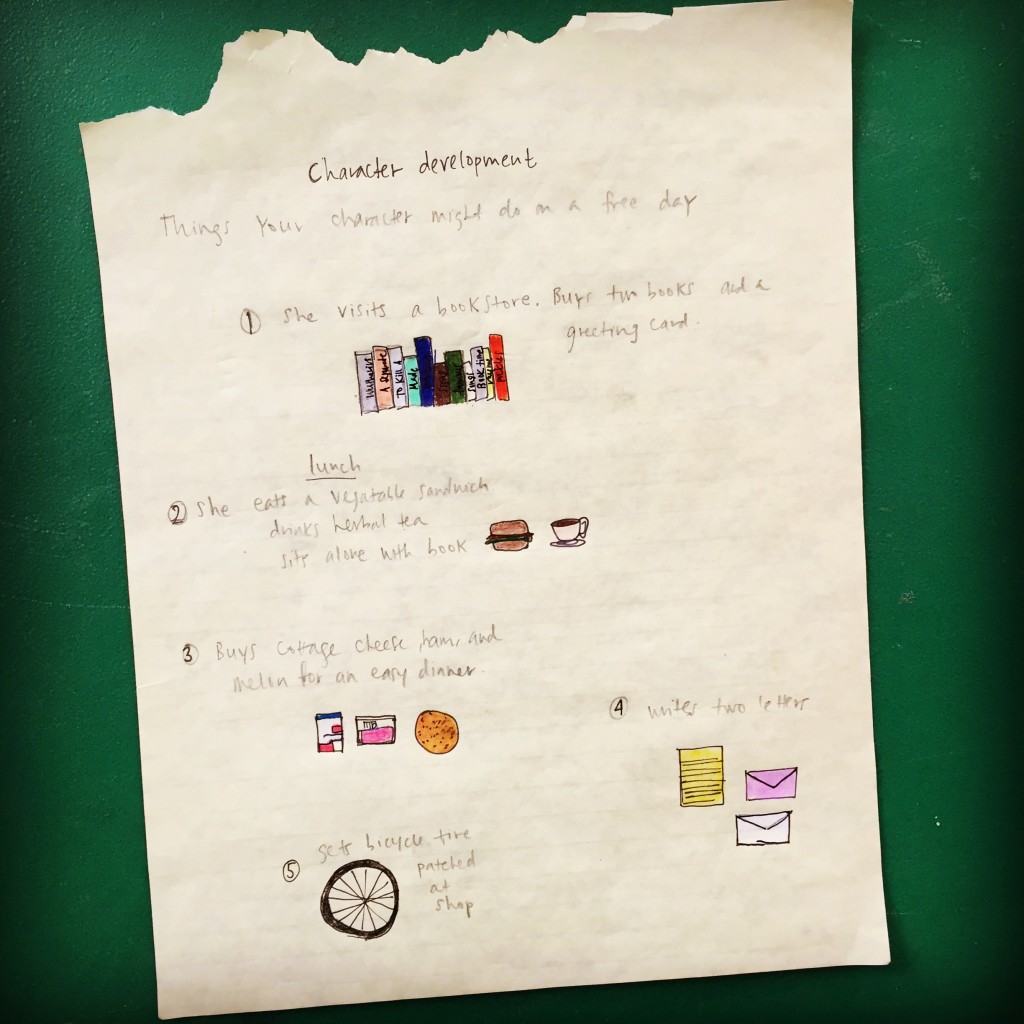 Character development
Things your character might do on a free day
① She visits a bookstore. Buys two books and a
greeting card.
A Separate
To Kill A
Made
Book time
lunch
② She eats a vegatable sandwich
drinks herbal tea
sits alone with book
③ Buys cottage cheese, ham, and
melon for an easy dinner.
④ writes two letters
⑤ gets bicycle tire
patched
at
shop